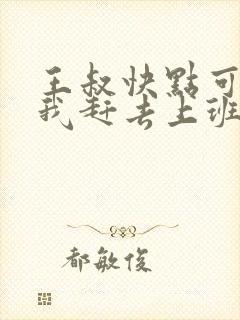 王叔快點可
我赶去上班
都敏俊